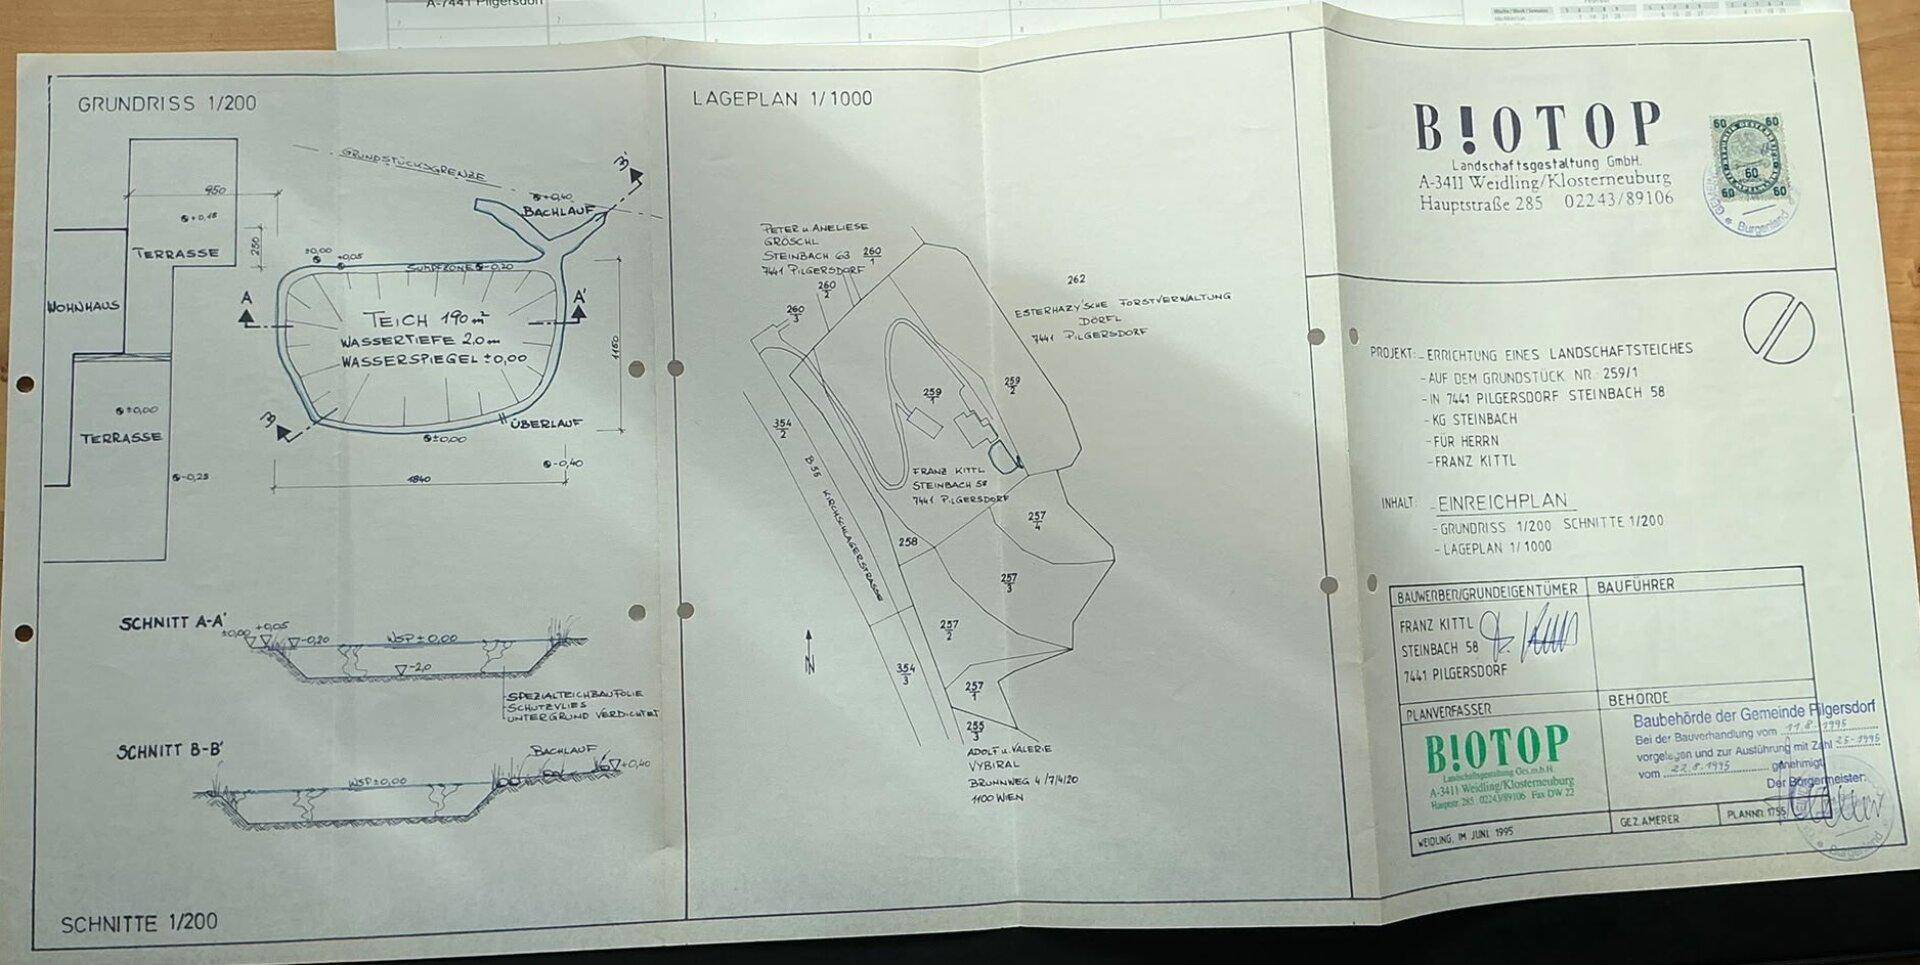 A-7441 Pilgersdorf
GRUNDRISS 1/200
GRUNDSTÜCKSGRENZE
B'
950
+0,40
BACHLAUF
+0,15
250
TERRASSE
±0,00
+0,05
SUMPFZONE -0,20
WOHNHAUS
A
A'
TEICH 190 m²
WASSERTIEFE 2,0 m
WASSERSPIEGEL ±0,00
1150
±0,00
TERRASSE
B
ÜBERLAUF
±0,00
-0,40
-0,25
1840
SCHNITT A-A'
±0,00
+0,05
-0,20
WSP ±0,00
-2,0
SPEZIALTEICHBAUFOLIE
SCHUTZVLIES
UNTERGRUND VERDICHTET
SCHNITT B-B'
WSP ±0,00
BACHLAUF
+0,40
SCHNITTE 1/200
LAGEPLAN 1/1000
PETER u. ANELIESE
GRÖSCHL
STEINBACH 63
7441 PILGERSDORF
260/1
260/2
260/3
262
ESTERHAZY'SCHE FORSTVERWALTUNG
DÖRFL
7441 PILGERSDORF
259/1
259/2
354/2
B 55 KIRCHSCHLAGERSTRASSE
FRANZ KITTL
STEINBACH 58
7441 PILGERSDORF
257/4
258
257/3
257/2
N
354/3
257/1
255/3
ADOLF u. VALERIE
VYBIRAL
BRUNNWEG 4/7/4/20
1100 WIEN
B!OTOP
Landschaftsgestaltung GmbH.
A-3411 Weidling/Klosterneuburg
Hauptstraße 285 02243/89106
60 60
60
60 60
Burgenland
PROJEKT: - ERRICHTUNG EINES LANDSCHAFTSTEICHES
- AUF DEM GRUNDSTÜCK NR. 259/1
- IN 7441 PILGERSDORF STEINBACH 58
- KG STEINBACH
- FÜR HERRN
- FRANZ KITTL
INHALT: - EINREICHPLAN
- GRUNDRISS 1/200 SCHNITTE 1/200
- LAGEPLAN 1/1000
BAUWERBER/GRUNDEIGENTÜMER
BAUFÜHRER
FRANZ KITTL
STEINBACH 58
7441 PILGERSDORF
PLANVERFASSER
BEHÖRDE
B!OTOP
Landschaftsgestaltung Ges.m.b.H.
A-3411 Weidling/Klosterneuburg
Hauptstr. 285 02243/89106 Fax DW 22
Baubehörde der Gemeinde Pilgersdorf
Bei der Bauverhandlung vom 11.8.1995
vorgelegen und zur Ausführung mit Zahl 25-1995
vom 22.8.1995 genehmigt.
Der Bürgermeister:
WEIDLING, IM JUNI 1995
GEZ. AMERER
PLANNR. 1755
Burgenland